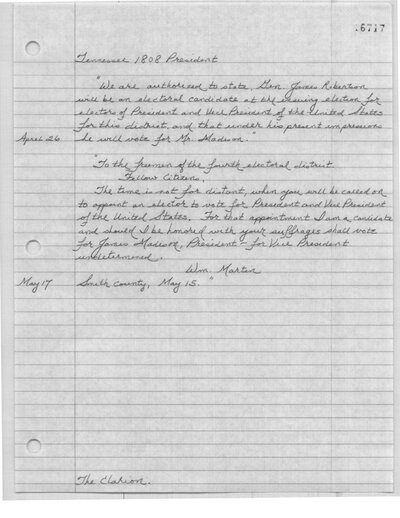 16717
Tennessee 1808 President
"We are authorized to state, Gen. James Robertson
will be an electoral candidate at the ensuing election for
electors of President and Vice President of the United States
for this district, and that under his present impressions
April 26 he will vote for Mr. Madison."
"To the freemen of the fourth electoral district
Fellow Citizens,
The time is not far distant, when you will be called on
to appoint an elector to vote for President and Vice President
of the United States. For that appointment I am a candidate
and should I be honored with your suffrages shall vote
for James Madison, President - for Vice President
undetermined.
Wm. Martin
May 17 Smith County, May 15."
The Clarion.